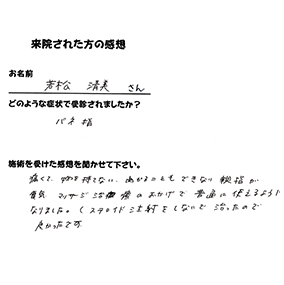 来院された方の感想
お名前
若松 清美 さん
どのような症状で受診されましたか？
バネ指
施術を受けた感想を聞かせて下さい。
痛くて、物を持てない、あけることもできない 親指が
電気 マッサージ 治療 のおかげで 普通に使えるように
なりました。（ステロイド注射をしないで 治ったので
良かったです